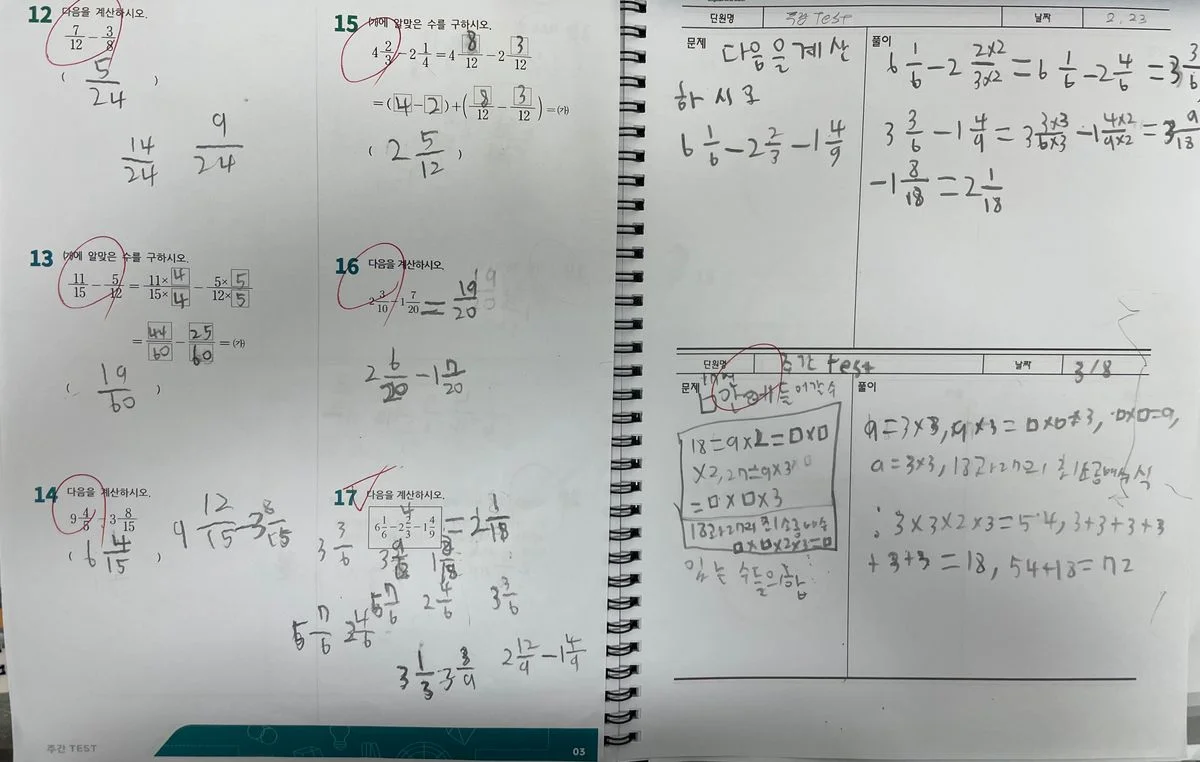 12 다음을 계산하시오.
7/12 - 3/8
( 5/24 )
14/24 9/24
13 (가)에 알맞은 수를 구하시오.
11/15 - 5/12 = 11×4/15×4 - 5×5/12×5
= 44/60 - 25/60 = (가)
( 19/60 )
14 다음을 계산하시오.
9 4/5 - 3 8/15
9 12/15 - 3 8/15
( 6 4/15 )
15 (가)에 알맞은 수를 구하시오.
4 2/3 - 2 1/4 = 4 8/12 - 2 3/12
= (4 - 2) + (8/12 - 3/12) = (가)
( 2 5/12 )
16 다음을 계산하시오.
2 3/10 - 1 7/20 = 19/20
2 6/20 - 1 7/20
17 다음을 계산하시오.
6 1/6 - 2 2/3 - 1 4/9 = 2 1/18
3 3/6
5 7/6 2 4/6 3 3/6
5 7/6 2 4/6
2 12/9 - 1 4/9
주간 TEST
03
단원명 주간 Test 날짜 2.23
문제 다음을 계산
하시오
6 1/6 - 2 2/3 - 1 4/9
풀이
6 1/6 - 2 2×2/3×2 = 6 1/6 - 2 4/6 = 3 3/6
3 3/6 - 1 4/9 = 3 3×3/6×3 - 1 4×2/9×2 = 3 9/18
- 1 8/18 = 2 1/18
단원명 주간 Test 날짜 3/8
문제
들어갈수
18=9×2=□×□
×2, 27=9×3
=□×□×3
18과 27의 최소공배수
□×□×2×3=□
있는 수들의 합
풀이
9=3×3, 9×3=□×□×3, □×□=9,
9=3×3, 18과 27의 최소공배수 식
; 3×3×2×3=54, 3+3+3+3
+3+3=18, 54+18=72